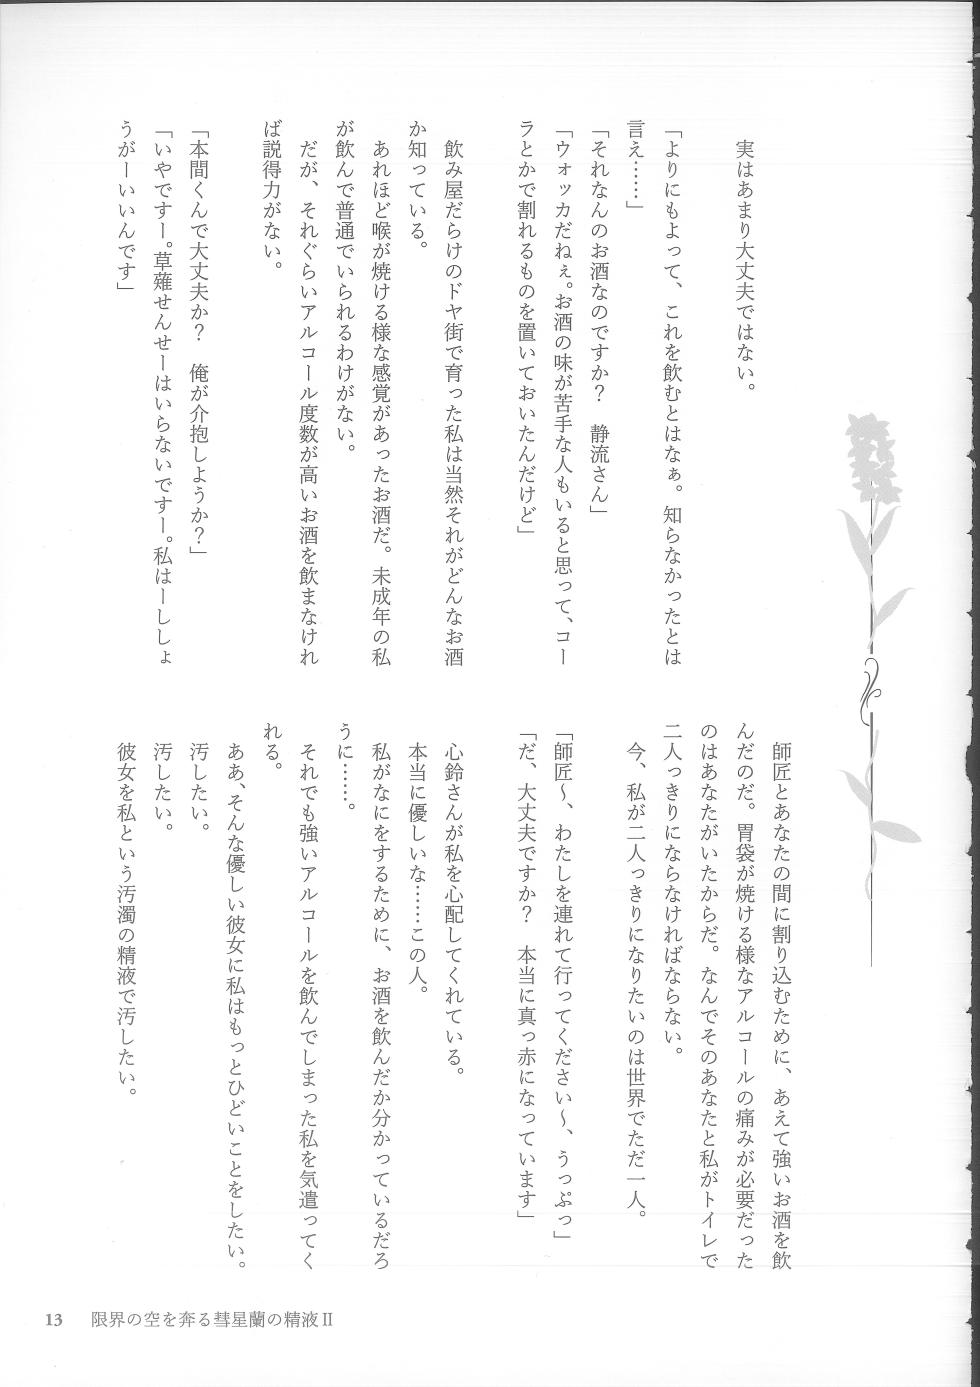 実はあまり大丈夫ではない。
「よりにもよって、これを飲むとはなぁ。知らなかったとは
言え……」
「それなんのお酒なのですか?　静流さん」
「ウォッカだねぇ。お酒の味が苦手な人もいると思って、コー
ラとかで割れるものを置いておいたんだけど」
飲み屋だらけのドヤ街で育った私は当然それがどんなお酒
か知っている。
あれほど喉が焼ける様な感覚があったお酒だ。未成年の私
が飲んで普通でいられるわけがない。
だが、それぐらいアルコール度数が高いお酒を飲まなけれ
ば説得力がない。
「本間くんで大丈夫か?　俺が介抱しようか?」
「いやですー。草薙せんせーはいらないですー。私はーししょ
うがーいいんです」
師匠とあなたの間に割り込むために、あえて強いお酒を飲
んだのだ。胃袋が焼ける様なアルコールの痛みが必要だった
のはあなたがいたからだ。なんでそのあなたと私がトイレで
二人っきりにならなければならない。
今、私が二人っきりになりたいのは世界でただ一人。
「師匠〜、わたしを連れて行ってください〜、うっぷっ」
「だ、大丈夫ですか?　本当に真っ赤になっています」
心鈴さんが私を心配してくれている。
本当に優しいな……この人。
私がなにをするために、お酒を飲んだか分かっているだろ
うに……。
それでも強いアルコールを飲んでしまった私を気遣ってく
れる。
ああ、そんな優しい彼女に私はもっとひどいことをしたい。
汚したい。
汚したい。
彼女を私という汚濁の精液で汚したい。
13　限界の空を奔る彗星蘭の精液Ⅱ